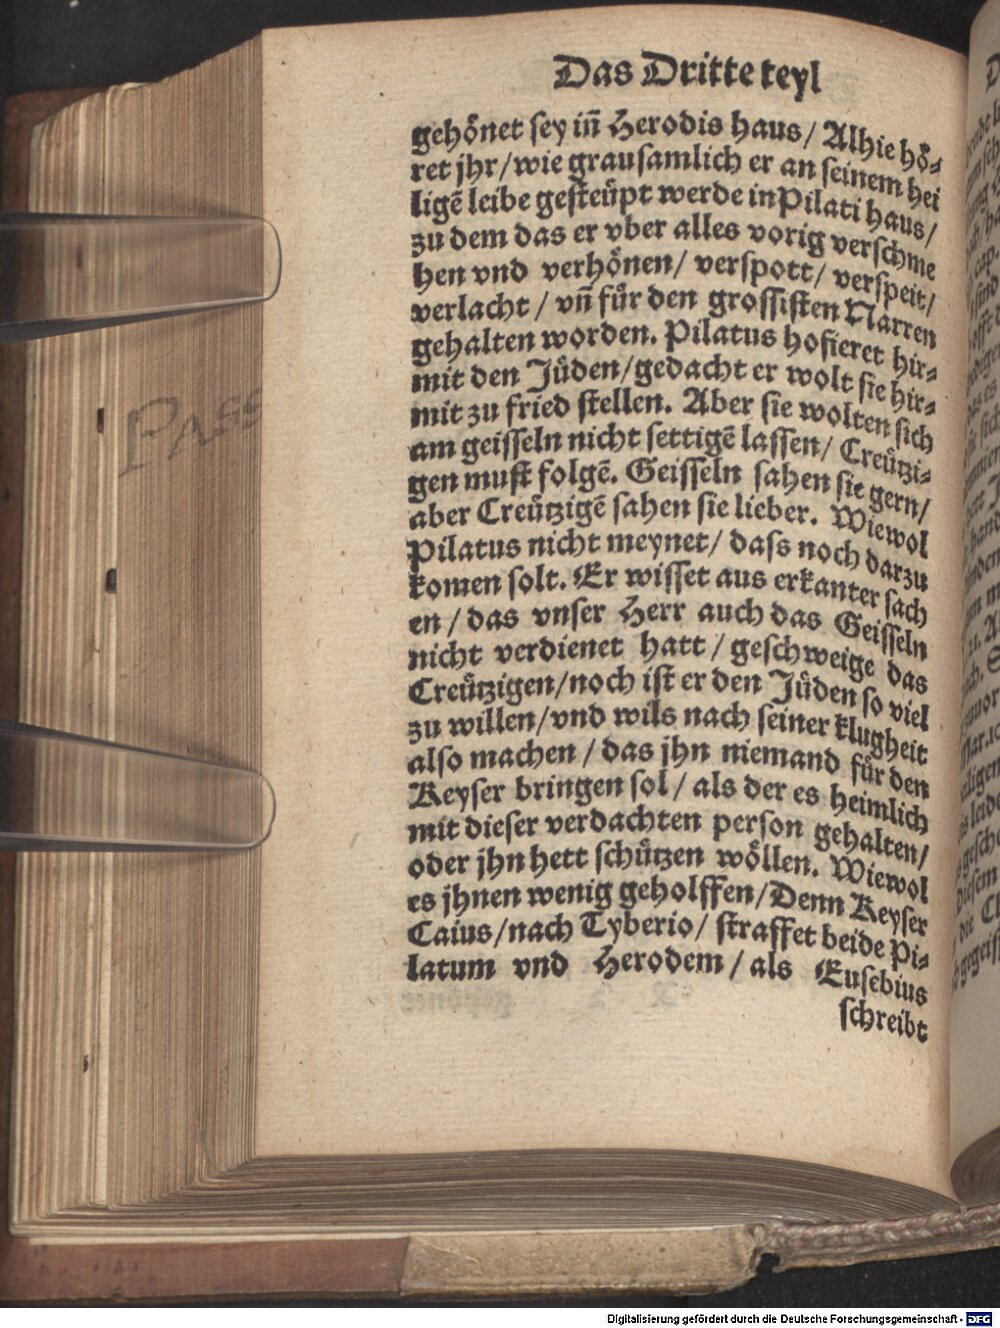 Das Dritte teyl
gehönet sey iñ Herodis haus / Alhie hö⸗
ret jhr / wie grausamlich er an seinem hei
ligẽ leibe gesteüpt werde in Pilati haus /
zu dem das er vber alles vorig verschme
hen vnd verhönen / verspott / verspeit /
verlacht / vñ für den grossisten Narren
gehalten worden. Pilatus hofieret hir⸗
mit den Jüden / gedacht er wolt sie hir⸗
mit zu fried stellen. Aber sie wolten sich
am geisseln nicht settigẽ lassen / Creützi⸗
gen must folgẽ. Geisseln sahen sie gern /
aber Creützigẽ sahen sie lieber. Wiewol
Pilatus nicht meynet / dass noch darzu
komen solt. Er wisset aus erkanter sach
en / das vnser Herr auch das Geisseln
nicht verdienet hatt / geschweige das
Creützigen / noch ist er den Jüden so viel
zu willen / vnd wils nach seiner klugheit
also machen / das jhn niemand für den
Keyser bringen sol / als der es heimlich
mit dieser verdachten person gehalten /
oder jhn hett schützen wöllen. Wiewol
es jhnen wenig geholffen / Denn Keyser
Caius / nach Tyberio / straffet beide Pi⸗
latum vnd Herodem / als Eusebius
schreibt
PASS
Digitalisierung gefördert durch die Deutsche Forschungsgemeinschaft - DFG